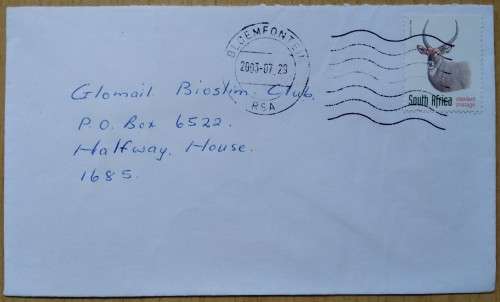 BLOEMFONTEIN
2003-07-29
RSA
South Africa
standard
postage
Glomail Bioslim Club.
P.O. Box 6522.
Halfway. House.
1685.